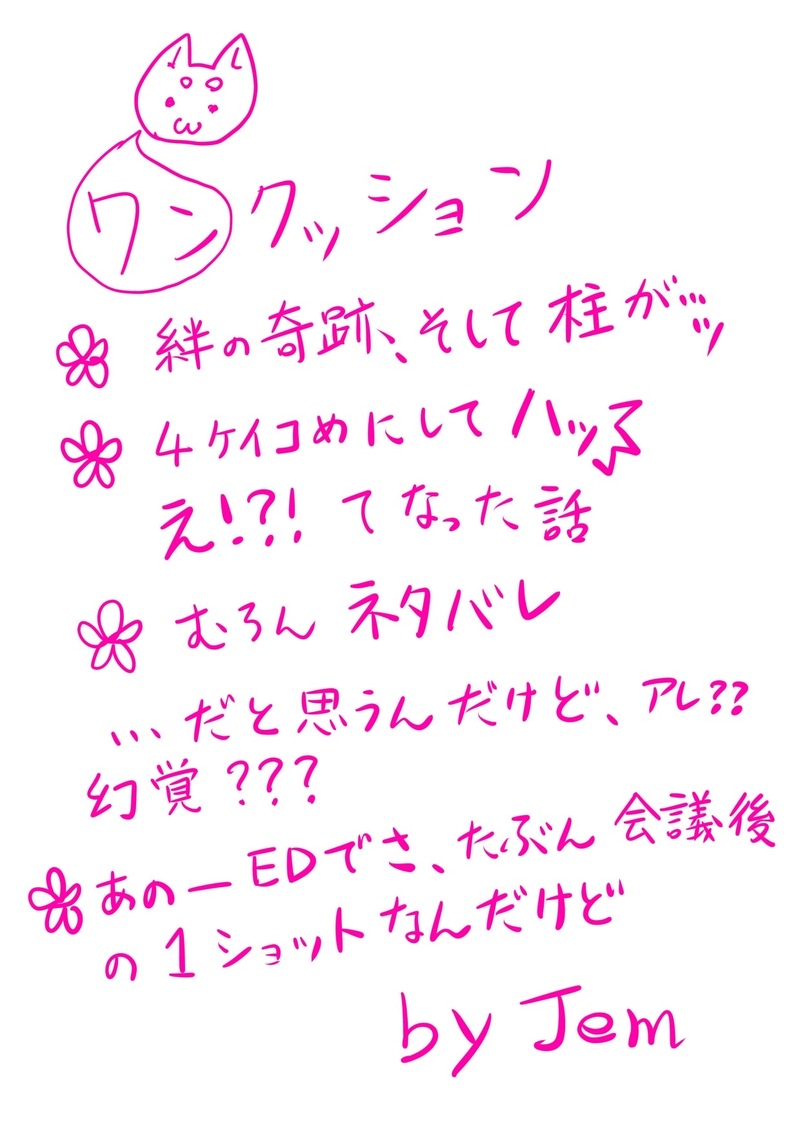 ワンクッション
絆の奇跡、そして柱がッ
4ケイコめにしてハッ
え!?! てなった話
むろん ネタバレ
...だと思うんだけど、アレ??
幻覚???
あのーEDでさ、たぶん会議後
の1ショットなんだけど
by Jem